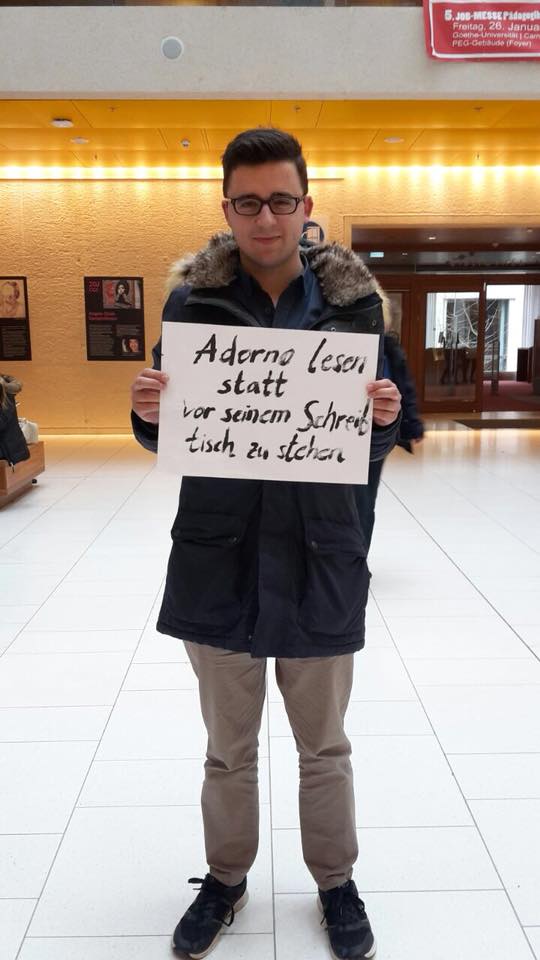 5. JOB-MESSE Pädagogik
Freitag, 26. Janua
Goethe-Universität | Cam
PEG-Gebäude (Foyer)
Adorno lesen
statt
vor seinem Schreib
tisch zu stehen